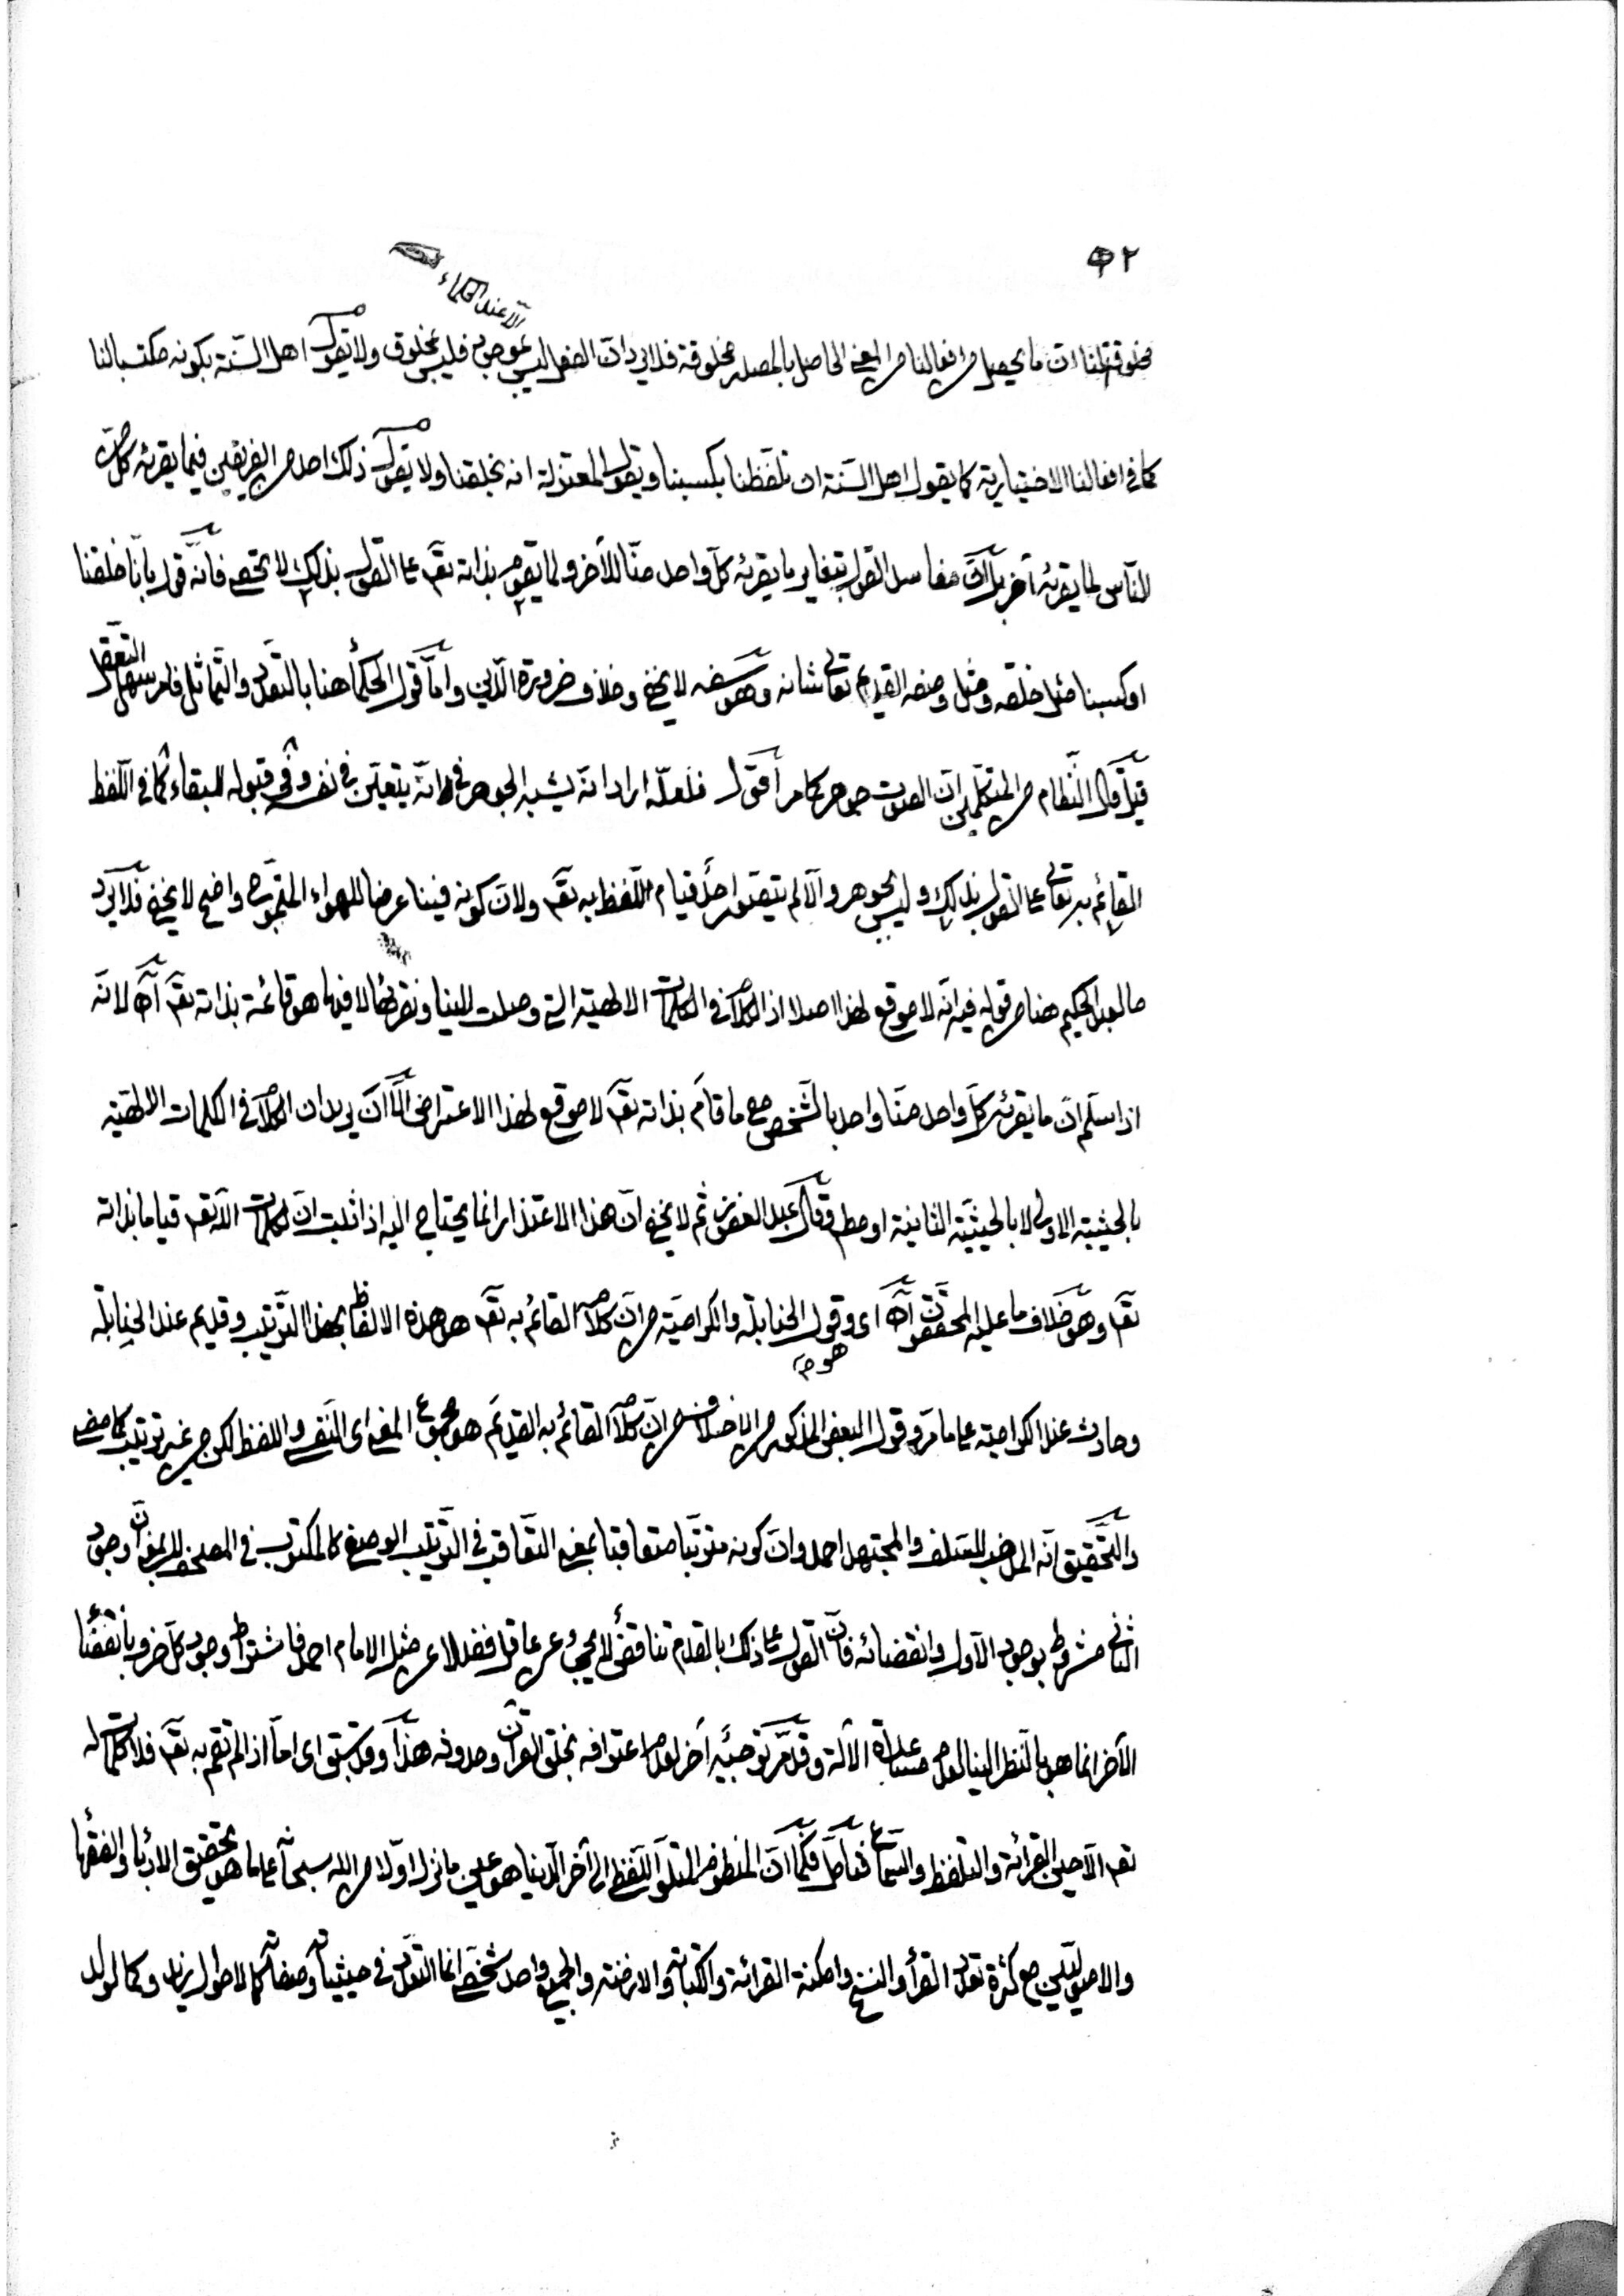 ٩٢
الا عند الحكماء
مخلوقة لنا ان ما يحصل من افعالنا من المعنى الحاصل بالمصدر مخلوقة فلا يرد ان الفعل ليس بموجود فليس بمخلوق ولا يقول اهل السنة بكونه مكتسبا لنا
كما في افعالنا الاختيارية كما يقول اهل السنة ان تلفظنا بكسبنا ويقول المعتزلة انه بخلقنا ولا يقول ذلك احد من الفريقين فيما يقرئه كل
للناس لما يقرئه آخر مفاسد القول بتغاير ما يقرئه كل واحد منا للآخر ولما يقوم بذاته تعم على القول بذلك لا تحصى فانه قول بانا خلقنا
او كسبنا مثل خلقه ومثل وصفه القديم تعالى شانه وهو سفه لا يخفى وخلاف ضرورة الدين واما قول الحكماء هنا بالتعدد والتماثل
قيل قال النظام من المتكلمين ان الصوت جوهر كما مر أقول فلعله اراد انه يشبه الجوهر في انه يتعين في نفسه وفي قبوله للبقاء كما في اللفظ
القائم به تعالى على القول بذلك وليس بجوهر والا لم يتصور احد قيام اللفظ به تعم ولان كونه فينا عرضا للهواء المتموج واضح لا يخفى فلا يرد
ما لعبد الحكيم هنا من قوله فيه انه لا موقع لهذا اصلا اذ الكلام في الكلمات الالهية التي وصلت الينا ونقرئها لا فيما هو قائمة بذاته تعم آه لانه
اذا سلم ان ما يقرئه كل واحد منا واحد بالشخص مع ما قام بذاته تعم لا موقع لهذا الاعتراض الا ان يريد ان الكلام في الكلمات الالهية
بالحيثية الاولى لا بالحيثية الثانية او مطم وقال عبد الغفور ثم لا يخفى ان هذا الاعتذار انما يحتاج اليه اذا ثبت ان لكلمات الله تعم قياما بذاته
تعم وهو خلاف ما عليه المحققون آه اى وقول الحنابلة والكرامية من ان كلامه القائم به تعم هو هذه الالفاظ بهذا الترتيب وقديم عند الحنابلة
هو م
وحادث عند الكرامية على ما مر وقول البعض المذكور من ان كلامه القائم به القديم هو مجموع المعنى اى النفسي واللفظ لكن من غير ترتيب كما مضى
والتحقيق انه المذهب للسلف والمجتهد احمد وان كونه مترتبا متعاقبا بمعنى التعاقب في الترتيب الوضعي كالمكتوب في المصحف لا بمعنى ان وجود
الثاني مشروط بوجود الاول وانقضائه فان القول على ذلك بالقدم تناقض لا يجيئ عن عاقل فضلا عن مثل الامام احمد فاشتراط وجود كل حرف بانقضاء
الآخر انما هو بالنظر الينا لعدم مساعدة الآلة وقد مر توجيه آخر لعدم اعترافه بخلق القرآن وحدوثه هذا وقد سبق اى اما اذا لم تقم به تعم فلا كلمات له
تعم الا حين القرائة والتلفظ والسماع فتامل فكما ان المنطوق المتلو اللفظ الى آخر الدنيا هو عين ما نزل اولا من الله سبحانه على ما هو تحقيق الادباء والفقهاء
والاصوليين مع كثرة تعدد القرأ والنسخ وامكنة القرائة والكتابة والازمنة والجميع واحد شخصى انما التعدد في حيثياته وصفاته كالاطوار لزيد وكما لولد